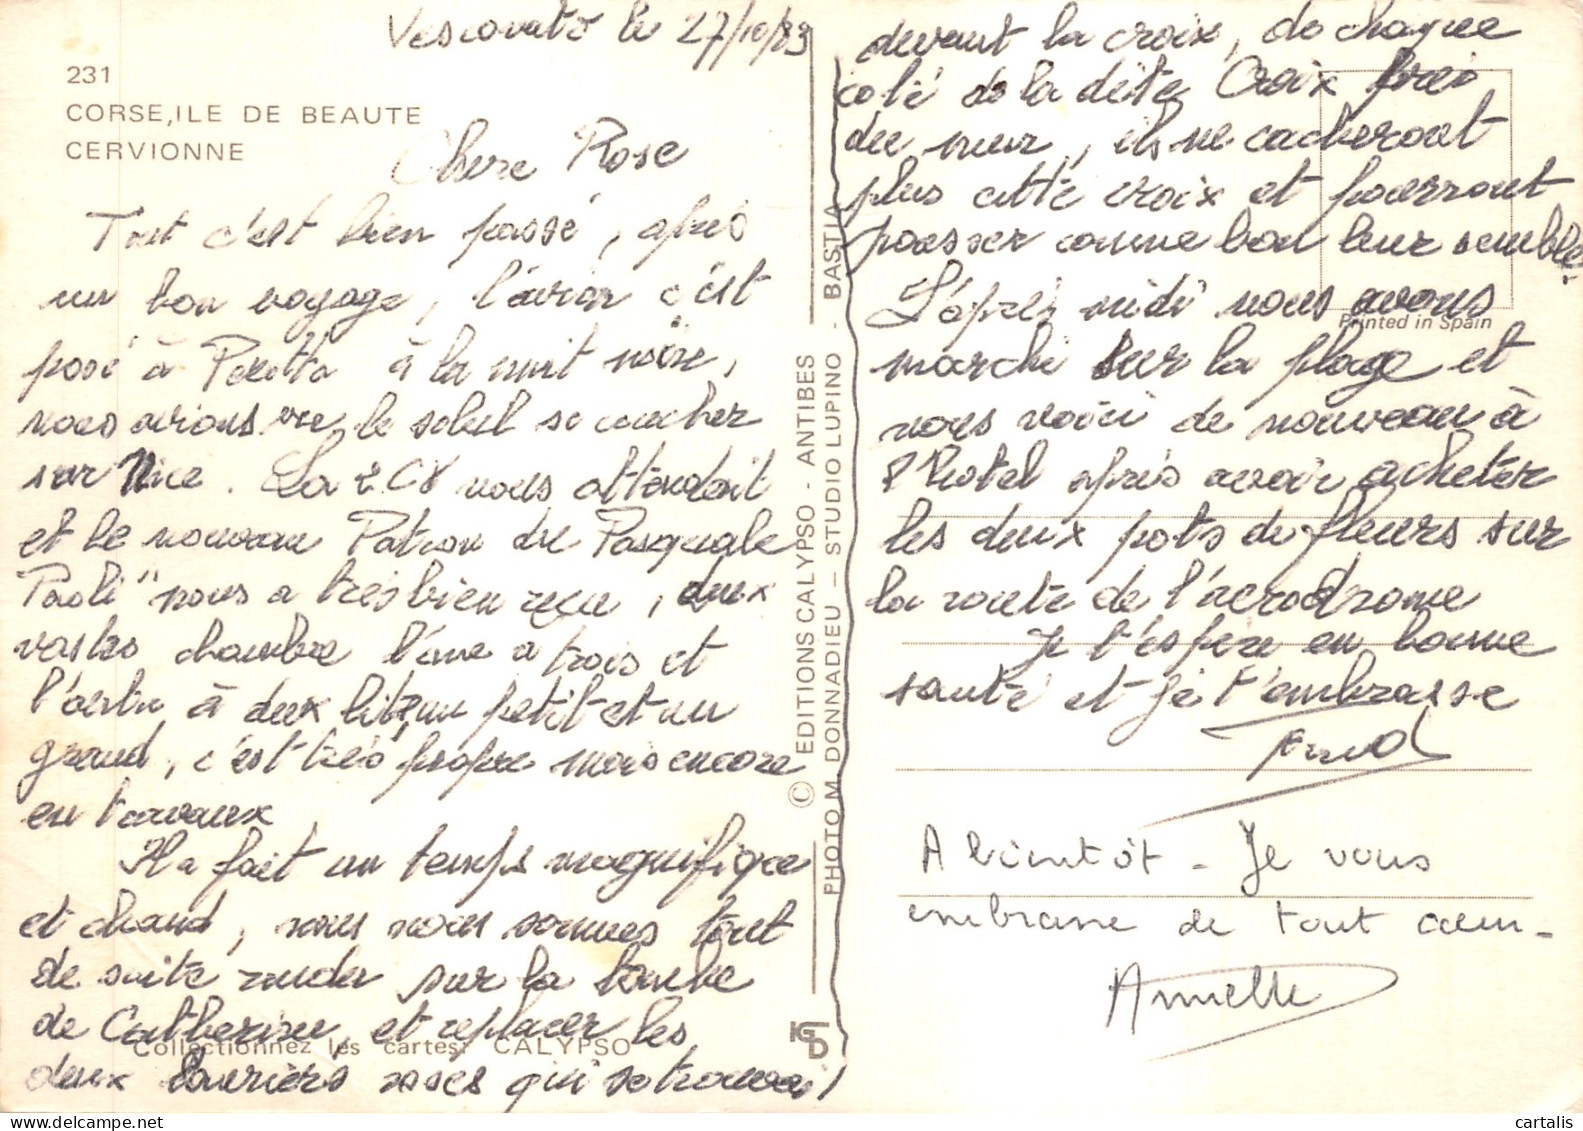 Vescovato le 27/10/83
231
CORSE, ILE DE BEAUTE
CERVIONNE
Chere Rose
Tout c'est bien passé, après
un bon voyage, l'avion c'est
posé à Poretta à la nuit noire,
nous avions vu le soleil se coucher
sur Nice. La 2 CV nous attendait
et le nouveau Patron du Pasquale
Paoli" nous a très bien reçu, deux
vastes chambre l'une a trois et
l'autre à deux lits, un petit et un
grand, c'est très propre mais encore
en travaux
Il a fait un temps magnifique
et chaud, nous nous sommes tout
de suite rendu sur la tombe
de Catherine, et replacer les
deux lauriers roses qui se trouvai
Collectionnez les cartes: CALYPSO
© EDITIONS CALYPSO - ANTIBES
PHOTO M. DONNADIEU - STUDIO LUPINO - BASTIA
devant la croix, de chaque
coté de la dite Croix près
du mur, ils ne cacheront
plus cette croix et pourront
pousser comme bon leur semble.
Printed in Spain
L'après midi nous avons
marché sur la plage et
nous voici de nouveau à
l'hotel après avoir acheter
les deux pots de fleurs sur
la route de l'aerodrome
Je t'espere en bonne
santé et je t'embrasse
A bientôt - Je vous
embrasse de tout coeur -
Annette